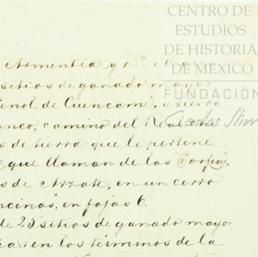 CENTRO DE
ESTUDIOS
DE HISTORIA
DE MEXICO
FUNDACIÓN
Carlos Slim
Armentia y
sitios de ganado mayor
de Cuencamé, y sierra
camino del Real
s de tierra que le pertene
que llaman de las
s de Arzate, en un cerro
ncinas, en fojas 6.
de 25 sitios de ganado mayo
en los términos de la